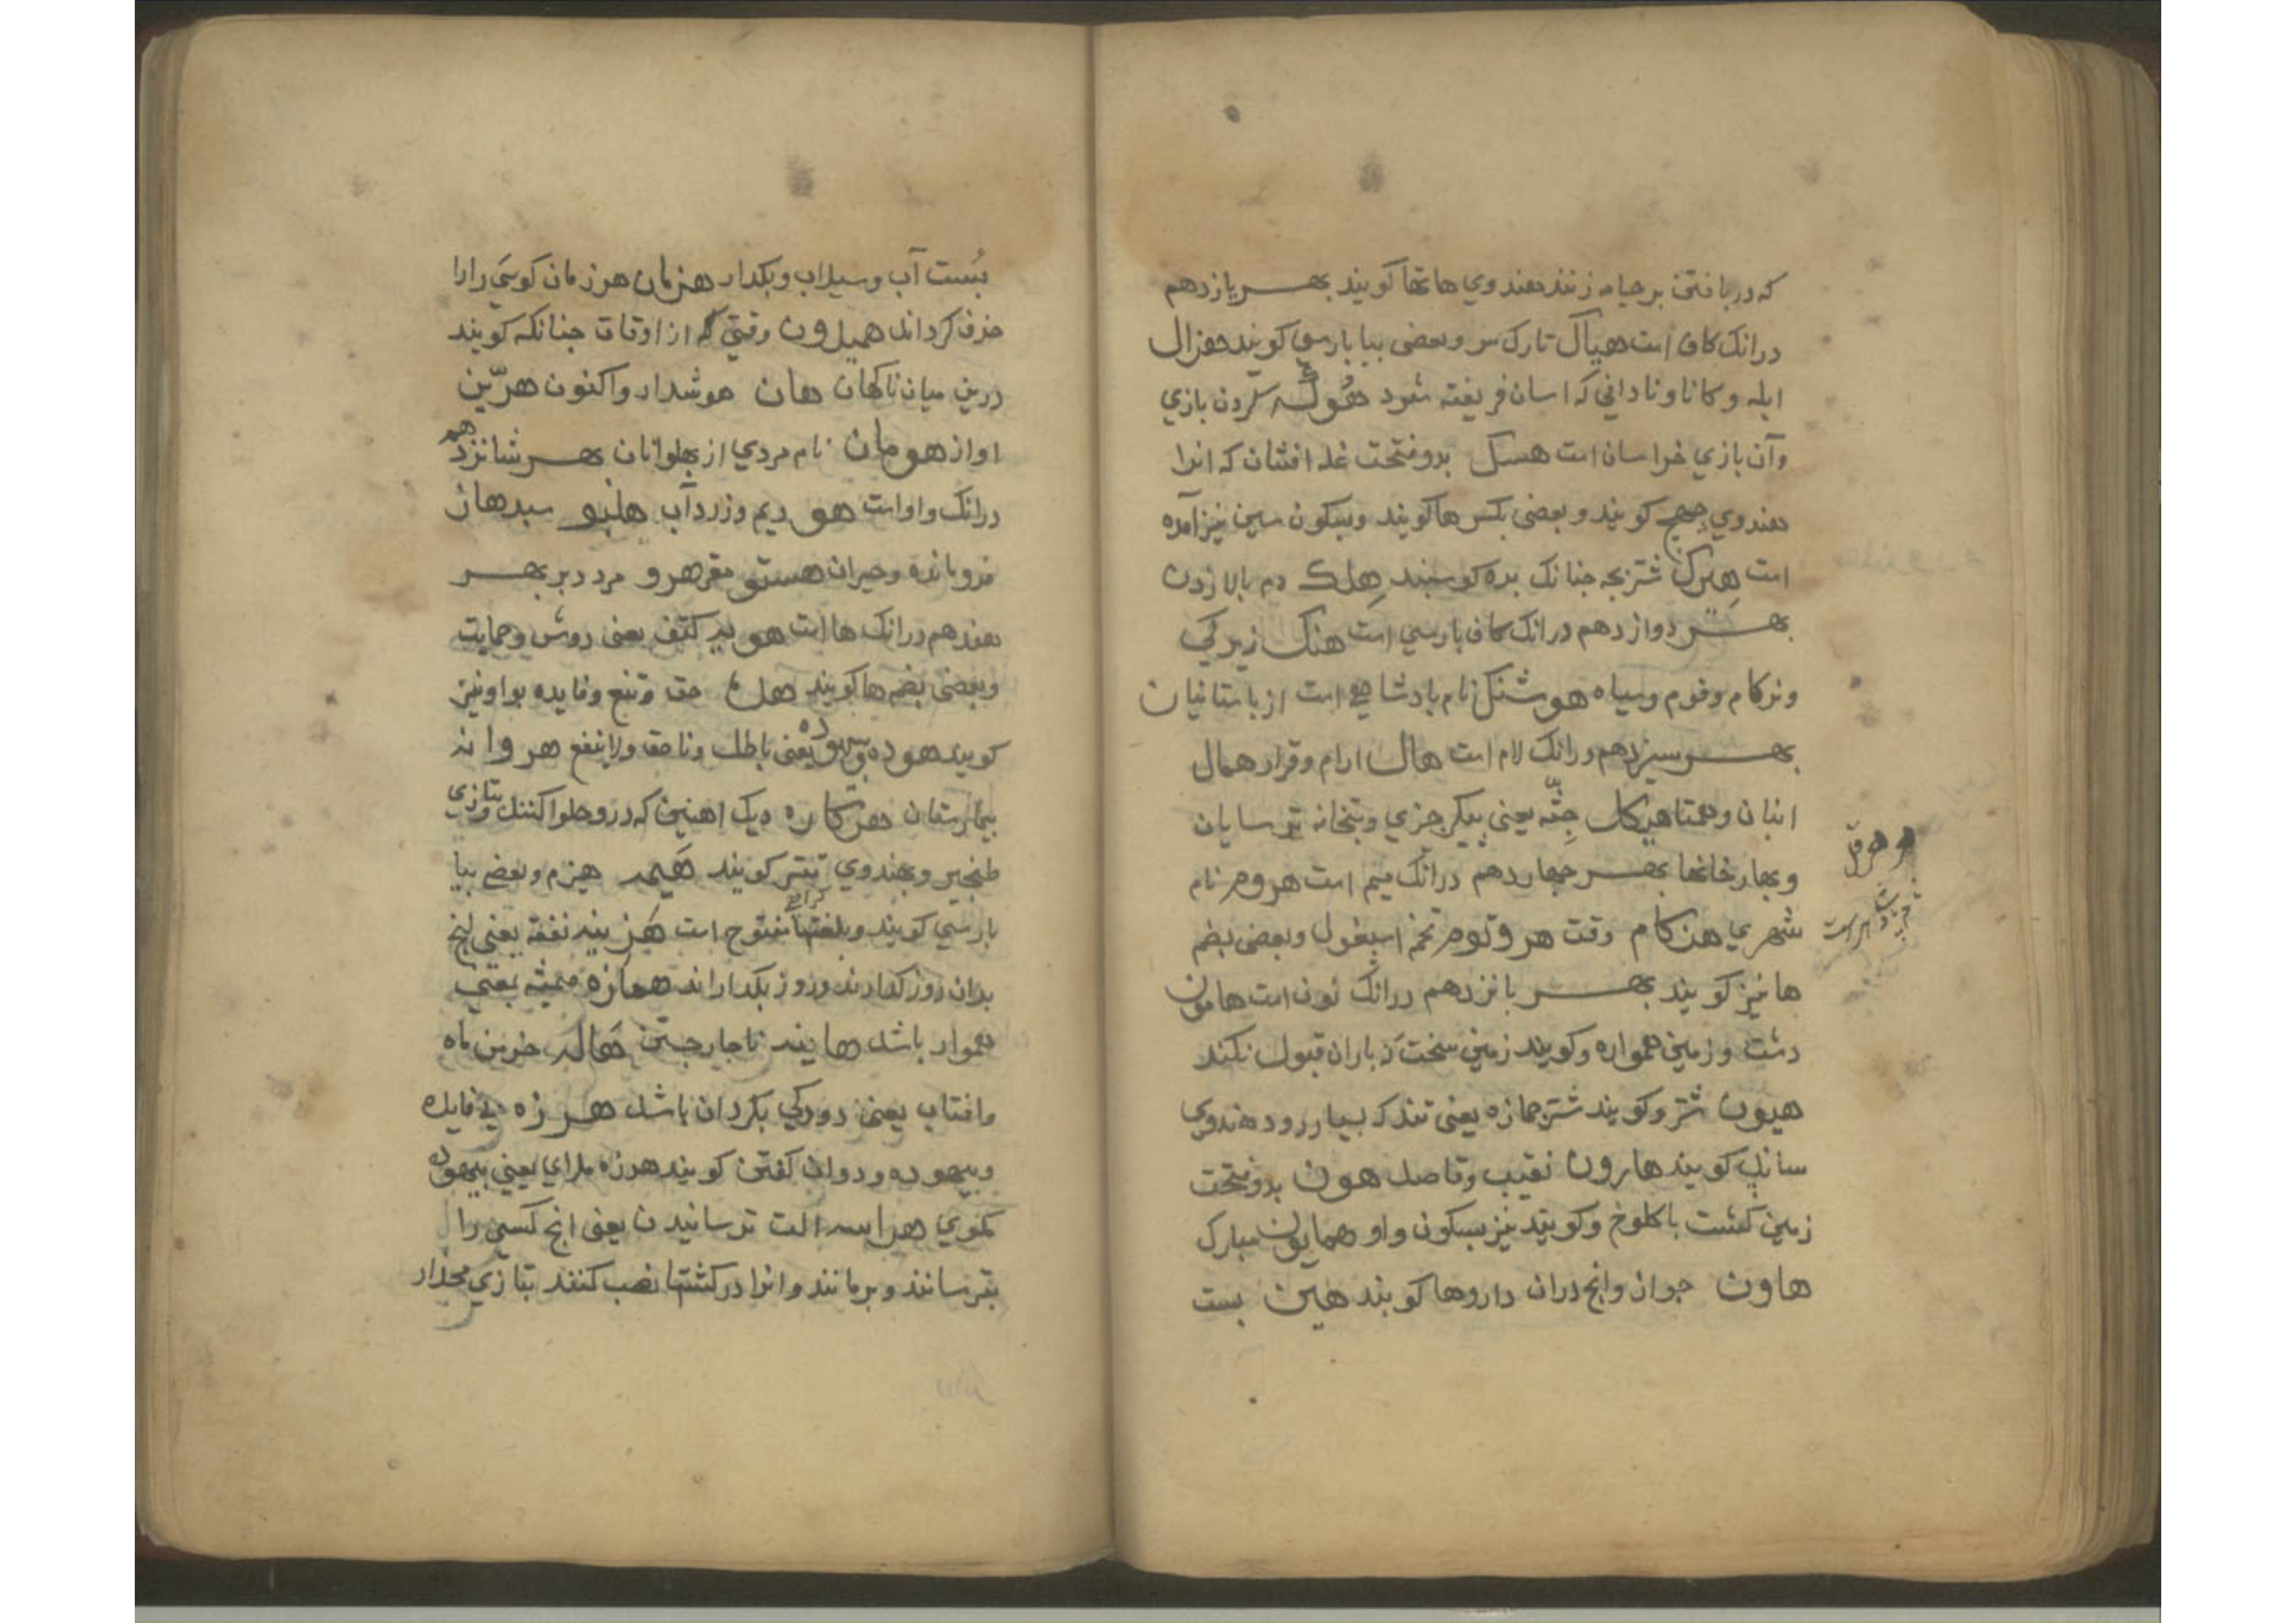 که در بافتن بر جامه زنند هندوی هاتها کویند بهر یازدهم
درانک کاف است هباک تارک سر و بعضی ببا پارسی کویند هزاک
ابله و کانا و نادانی که اسان فریفته شود کردن بازی
وآن بازی خراسان است هسک بدو فتحت غله افشان که انرا
هندوی چهج کویند و بعضی بکسر ها کویند و بسکون سین نیز آمده
است شتر بچه چنانک بره کوسبند هلک دم بالا زدن
بهر دوازدهم درانک کاف پارسی است هنک زیرکی
وزکام وقوم وسپاه هوشنک نام پادشاهی است از باستانیان
بهر سیزدهم درانک لام است هال ارام وقرار همال
انبان وهمتا هیکل جثه یعنی پیکر چیزی وبتخانه ترسایان
وبهار خانها بهر چهاردهم درانک میم است هروم نام
شهری هنکام وقت هروتوم تخم اسبغول وبعضی بضم
ها نیز کویند بهر پانزدهم درانک نون است هامون
دشت وزمین همواره وکویند زمین سخت که باران قبول نکند
هیون شتر وکویند شتر جمازه یعنی تند که بسیار رود هندوی
سانب کویند هارون نقیب وقاصد هون بدو فتحت
زمین کشت با کلوخ وکویند نیز بسکون واو همایون مبارک
هاون جواز وانچ دران داروها کوبند هین بست
بست آب وسیلاب وبکدار هزمان هر زمان کوی را را
حذف کرداند همیدون وقتی که از اوقات چنانکه کویند
درین میان ناکهان هان هوشدار واکنون هزین
اواز هومان نام مردی از پهلوانان بهر شانزدهم
درانک واو است هو ریم وزرداب سبد هان
فرومانده وحیران هستو مقر هرو مرد دبر بهر
هفدهم درانک ها است کتف یعنی دوش وحمایت
وبعضی بضم ها کویند هده حق ونفع وفایده بواو نیز
کویند هوده بیهوده یعنی باطل وناحق ولا ینفع هروانه
بیمارستان هرکاره دیک اهنین که درو حلوا کنند وتازی
طنجیر وبهندوی کویند هیمه هیزم وبعضی ببا
پارسی کویند مفتوح است هزینه نفقه یعنی انچ
بدان روز کدارند وروز بکدارانند همازه همیشه بمعنی
همواره باشد هاینه ناچار جستن هاله خرمن ماه
وافتاب یعنی دورکی بکرد ان باشد هرزه بی فایده
وبیهوده ودوان کفتن کویند هرزه مدرای یعنی بیهوده
مکوی هراسه الت ترسانیدن یعنی انچ کسی را
بترسانند وبرمانند وانرا در کشتها نصب کنند بتازی مجدار